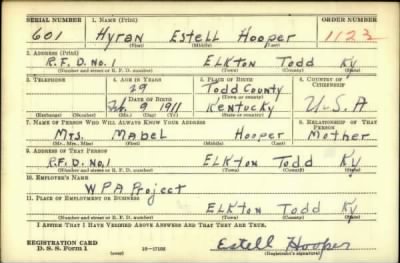 SERIAL NUMBER 1. NAME (Print) ORDER NUMBER
601 Hyran Estell Hooper 1123
(First) (Middle) (Last)
2. ADDRESS (Print)
R.F.D. No. 1 Elkton Todd Ky
(Number and street or R. F. D. number) (Town) (County) (State)
3. TELEPHONE 4. AGE IN YEARS 5. PLACE OF BIRTH 6. COUNTRY OF CITIZENSHIP
29 Todd County
DATE OF BIRTH (Town or county)
Feb 9 1911 Kentucky U.S.A
(Exchange) (Number) (Mo.) (Day) (Yr.) (State or country)
7. NAME OF PERSON WHO WILL ALWAYS KNOW YOUR ADDRESS 8. RELATIONSHIP OF THAT PERSON
Mrs. Mabel Hooper Mother
(Mr., Mrs., Miss) (First) (Middle) (Last)
9. ADDRESS OF THAT PERSON
R.F.D. No, 1 Elkton Todd Ky
(Number and street or R. F. D. number) (Town) (County) (State)
10. EMPLOYER'S NAME
WPA Project
11. PLACE OF EMPLOYMENT OR BUSINESS
Elkton Todd Ky
(Number and street or R. F. D. number) (Town) (County) (State)
I AFFIRM THAT I HAVE VERIFIED ABOVE ANSWERS AND THAT THEY ARE TRUE.
REGISTRATION CARD
D. S. S. Form 1 (over) Estell Hooper
(Registrant's signature)